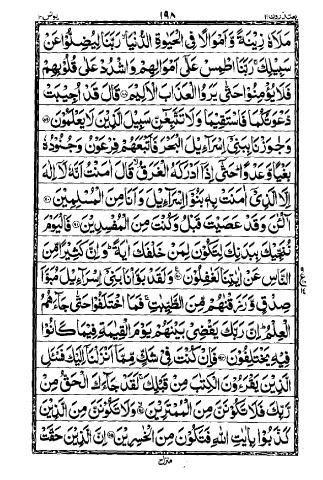 یونس ۱۰ ۱۹۸ یعتذرون ۱۱
مَلَاَهٗ زِیْنَةً وَّاَمْوَالًا فِی الْحَیٰوةِ الدُّنْیَا رَبَّنَا لِیُضِلُّوْا عَنْ
سَبِیْلِكَ رَبَّنَا اطْمِسْ عَلٰۤی اَمْوَالِهِمْ وَاشْدُدْ عَلٰی قُلُوْبِهِمْ
فَلَا یُؤْمِنُوْا حَتّٰی یَرَوُا الْعَذَابَ الْاَلِیْمَ قَالَ قَدْ اُجِیْبَتْ
دَّعْوَتُكُمَا فَاسْتَقِیْمَا وَلَا تَتَّبِعٰٓنِّ سَبِیْلَ الَّذِیْنَ لَا یَعْلَمُوْنَ
وَجٰوَزْنَا بِبَنِیْۤ اِسْرَآءِیْلَ الْبَحْرَ فَاَتْبَعَهُمْ فِرْعَوْنُ وَجُنُوْدُهٗ
بَغْیًا وَّعَدْوًا حَتّٰۤی اِذَاۤ اَدْرَكَهُ الْغَرَقُ قَالَ اٰمَنْتُ اَنَّهٗ لَاۤ اِلٰهَ
اِلَّا الَّذِیْۤ اٰمَنَتْ بِهٖ بَنُوْۤا اِسْرَآءِیْلَ وَاَنَا مِنَ الْمُسْلِمِیْنَ
آٰلْـٰٔنَ وَقَدْ عَصَیْتَ قَبْلُ وَكُنْتَ مِنَ الْمُفْسِدِیْنَ فَالْیَوْمَ
نُنَجِّیْكَ بِبَدَنِكَ لِتَكُوْنَ لِمَنْ خَلْفَكَ اٰیَةً وَاِنَّ كَثِیْرًا مِّنَ
النَّاسِ عَنْ اٰیٰتِنَا لَغٰفِلُوْنَ وَلَقَدْ بَوَّاْنَا بَنِیْۤ اِسْرَآءِیْلَ مُبَوَّاَ
صِدْقٍ وَّرَزَقْنٰهُمْ مِّنَ الطَّیِّبٰتِ فَمَا اخْتَلَفُوْا حَتّٰی جَآءَهُمُ
الْعِلْمُ اِنَّ رَبَّكَ یَقْضِیْ بَیْنَهُمْ یَوْمَ الْقِیٰمَةِ فِیْمَا كَانُوْا
فِیْهِ یَخْتَلِفُوْنَ فَاِنْ كُنْتَ فِیْ شَكٍّ مِّمَّاۤ اَنْزَلْنَاۤ اِلَیْكَ فَسْـَٔلِ
الَّذِیْنَ یَقْرَءُوْنَ الْكِتٰبَ مِنْ قَبْلِكَ لَقَدْ جَآءَكَ الْحَقُّ مِنْ
رَّبِّكَ فَلَا تَكُوْنَنَّ مِنَ الْمُمْتَرِیْنَ وَلَا تَكُوْنَنَّ مِنَ الَّذِیْنَ
كَذَّبُوْا بِاٰیٰتِ اللّٰهِ فَتَكُوْنَ مِنَ الْخٰسِرِیْنَ اِنَّ الَّذِیْنَ حَقَّتْ
منزل